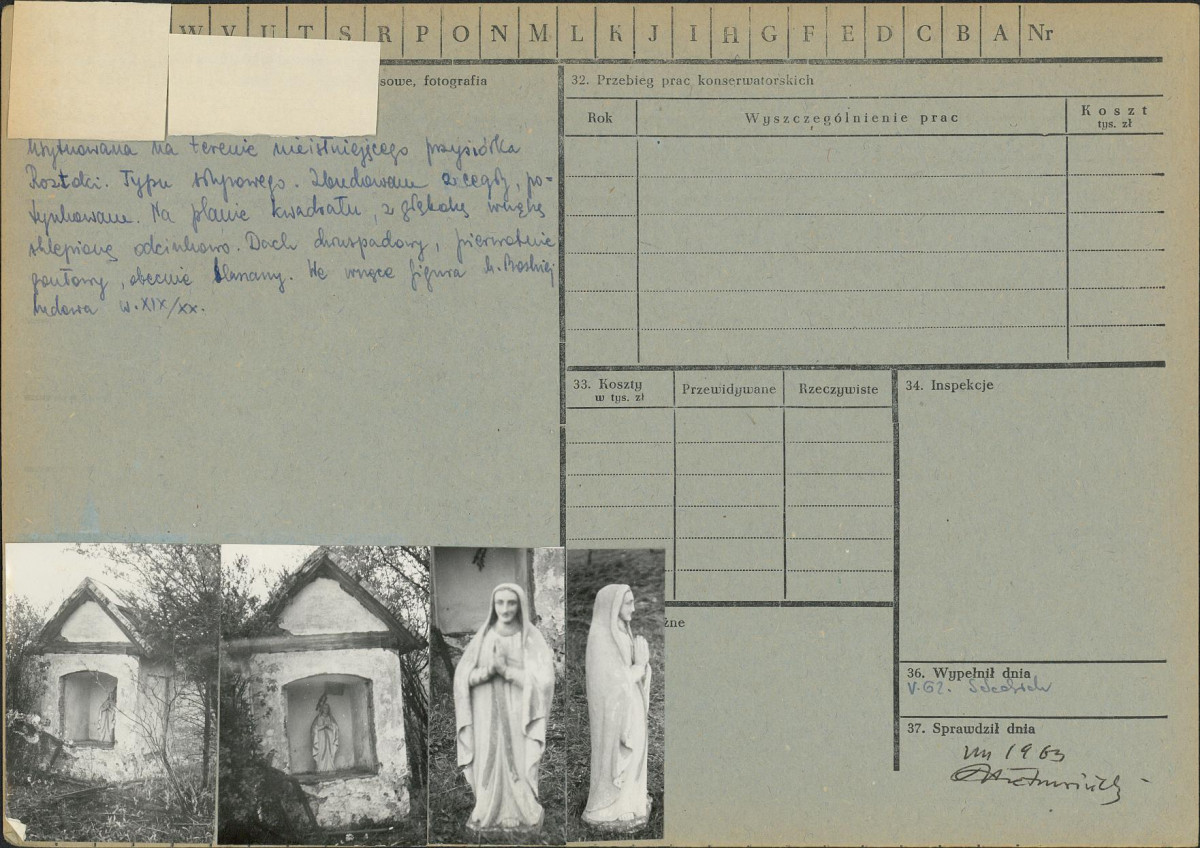 W V U T S R P O N M L K J I H G F E D C B A Nr
sowe, fotografia
Usytuowana na terenie nieistniejącego przysiółka
Roztoki. Typu słupowego. Zbudowana z cegły, po-
tynkowana. Na planie kwadratu, z głęboką wnęką
sklepioną odcinkowo. Dach dwuspadowy, pierwotnie
gontowy, obecnie blaszany. We wnęce figura M. Boskiej
ludowa w. XIX/XX.
32. Przebieg prac konserwatorskich
Rok
Wyszczególnienie prac
Koszt
tys. zł
33. Koszty
w tys. zł
Przewidywane
Rzeczywiste
34. Inspekcje
żne
36. Wypełnił dnia
V.62.
37. Sprawdził dnia
1963